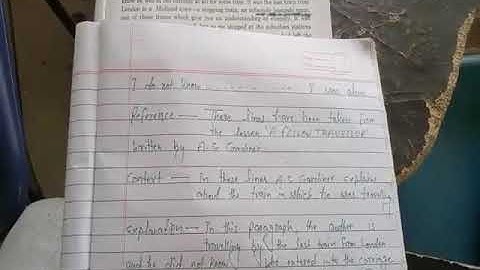 London to a Midland town—a stopping train, an infinitely leisurely train,
one of those trains which give you an understanding of eternity. It was
I do not know .............. I was alone
Reference — These lines have been taken from
the lesson 'A FELLOW TRAVELLER'
written by A.G Gardiner.
Context — In these lines A.G Gardiner explains
about the train in which he was traveling
Explanation — In this paragraph the author is
travelling by the last train from London
and he did not know who entered into the carriage